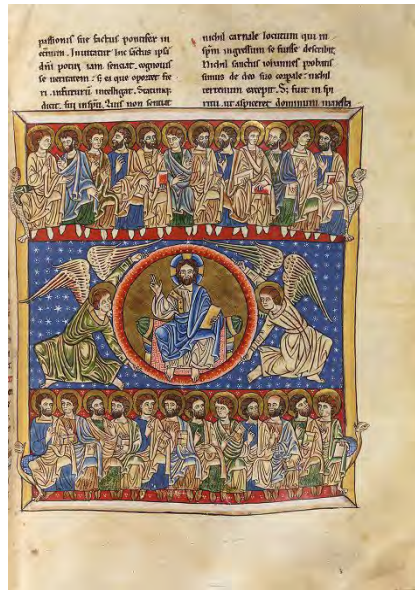 passionis sue factus pontifex in
hic ipsi
dñi iam senciat. cognouit
se ueritatem: s; ei quo fie
ri. infuturū intelligat. Statimq;
dicit. fui inspū. Quis non senciat
nichil carnale locutum qui in
spm ingressum se fuisse describit.
Nichil sanctus iohannes probauis
simus de deo suo corpale: nichil
terrenum excepit. S; fuit in spi
ritu. ut aspiceret dominum maiesta